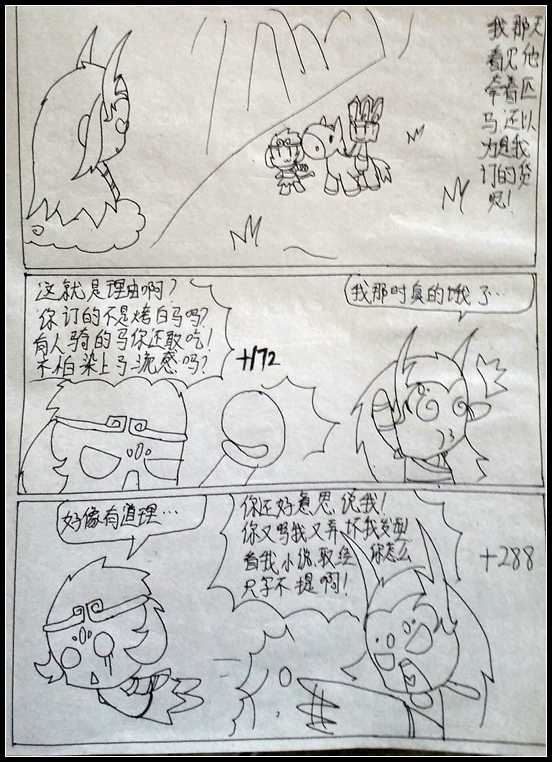 我那天
看见他
牵着匹
马还以
为是我
订的货
呢!
这就是理由啊?
你订的不是烤白马吗?
有人骑的马你还敢吃!
不怕染上马流感吗?
+172
我那时真的饿了…
好像有道理…
你还好意思说我!
你又骂我又弄坏我发型
看我小说取经你怎么
只字不提啊!
+288